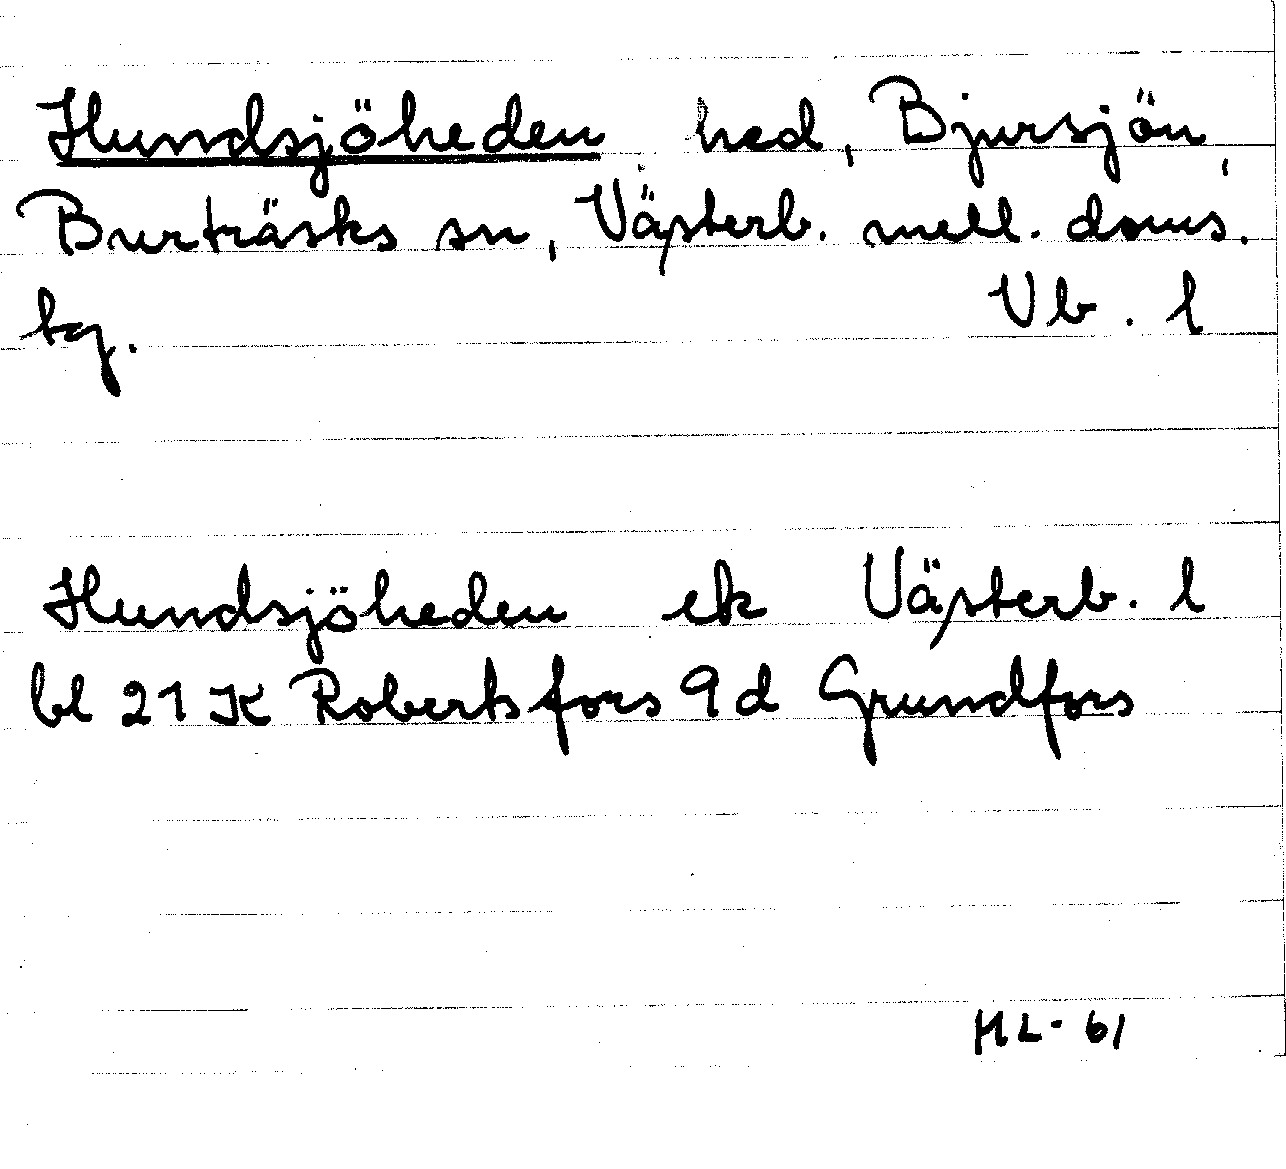 Hundsjöheden hed, Bjursjön,
Burträsks sn, Västerb. mell. doms.
tg. Vb. l
Hundsjöheden ek Västerb. l
bl 21 K Robertsfors 9 d Grundfors
HL-61